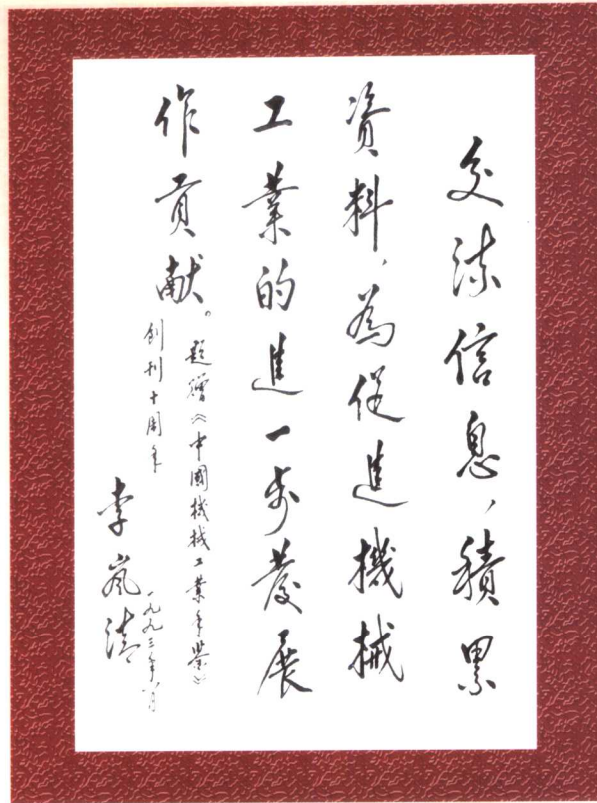 交流信息，積累
資料，為促進機械
工業的進一步發展
作貢献。
題贈《中國機械工業年鑒》
創刊十周年
李嵐清
一九九三年八月